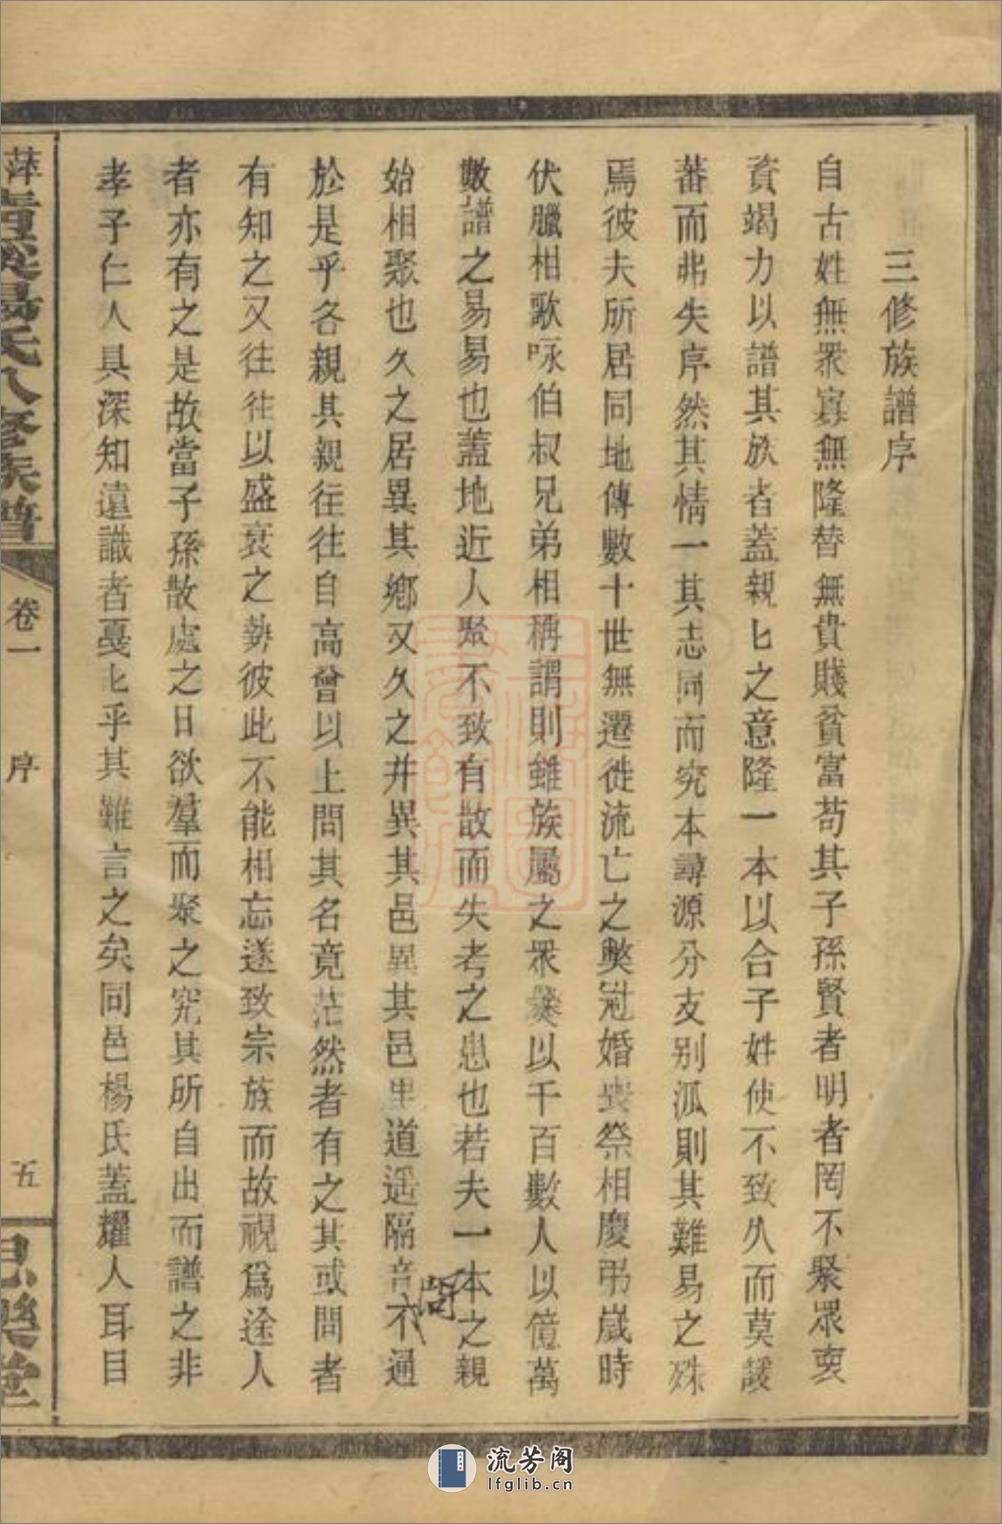 三修族譜序
自古姓無衆寡無隆替無貴賤貧富苟其子孫賢者明者罔不聚眾裒
資竭力以譜其族者蓋親匕之意隆一本以合子姓使不致久而莫諼
蕃而弗失序然其情一其志同而究本尋源分支别派則其難易之殊
焉彼夫所居同地傳數十世無遷徙流亡之獘冠婚喪祭相慶弔嵗時
伏臘相歌咏伯叔兄弟相稱謂則雖族屬之衆以千百數人以億萬
數譜之易易也蓋地近人聚不致有散而失考之患也若夫一本之親
始相聚也久之居異其鄉又久之井異其邑異其邑里道遥隔音不通
問
於是乎各親其親往往自高曾以上問其名竟茫然者有之其或問者
有知之又往往以盛衰之勢彼此不能相忘遂致宗族而故視爲途人
者亦有之是故當子孫散處之日欲羣而聚之究其所自出而譜之非
孝子仁人具深知遠識者戞匕乎其難言之矣同邑楊氏蓋耀人耳目
萍 氏八修族譜
卷一
序
五
樂堂
流芳阁
lfglib.cn